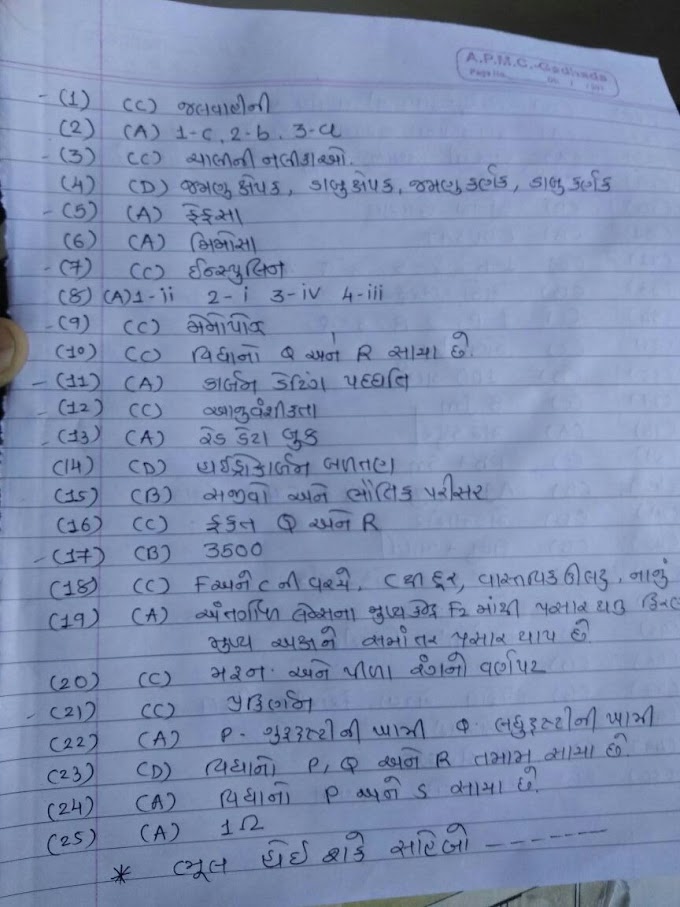 A.P.M.C.-Gadhada
Page No.
(1) (C) જલવાહીની
(2) (A) 1-c, 2-b, 3-a
(3) (C) ચાલની નલીકાઓ.
(4) (D) જમણુ ક્ષેપક, ડાબુ ક્ષેપક, જમણુ કર્ણક, ડાબુ કર્ણક
(5) (A) ફેફસા
(6) (A) મિમોસા
(7) (C) ઈન્સ્યુલિન
(8) (A) 1-ii 2-i 3-iv 4-iii
(9) (C)
(10) (C) વિધાનો Q અને R સાચા છે.
(11) (A) કાર્બન ડેટિંગ પધ્ધતિ
(12) (C) આનુવંશીકતા
(13) (A) રેડ ડેટા બુક
(14) (D) હાઈડ્રોકાર્બન બળતણ
(15) (B) સજીવો અને ભૌતિક પરીસર
(16) (C) ફક્ત Q અને R
(17) (B) 3500
(18) (C) F અને C ની વચ્ચે, C થી દૂર, વાસ્તવિક ઊલટુ, નાનું
(19) (A) અંતર્ગોળ લેન્સના મુખ્ય કેન્દ્ર F2 માંથી પ્રસાર થતુ કિરણ
મુખ્ય અક્ષને સમાંતર પ્રસાર થાય છે
(20) (C) અને પીળા રંગનો વર્ણપટ
(21) (C) પ્રકિર્ણન
(22) (A) P - ગુરુદ્રષ્ટીની ખામી Q લઘુદ્રષ્ટીની ખામી
(23) (D) વિધાનો P, Q અને R તમામ સાચા છે.
(24) (A) વિધાનો P અને S સાચા છે.
(25) (A) 1Ω
* ભૂલ હોઈ શકે સાહેબો -------